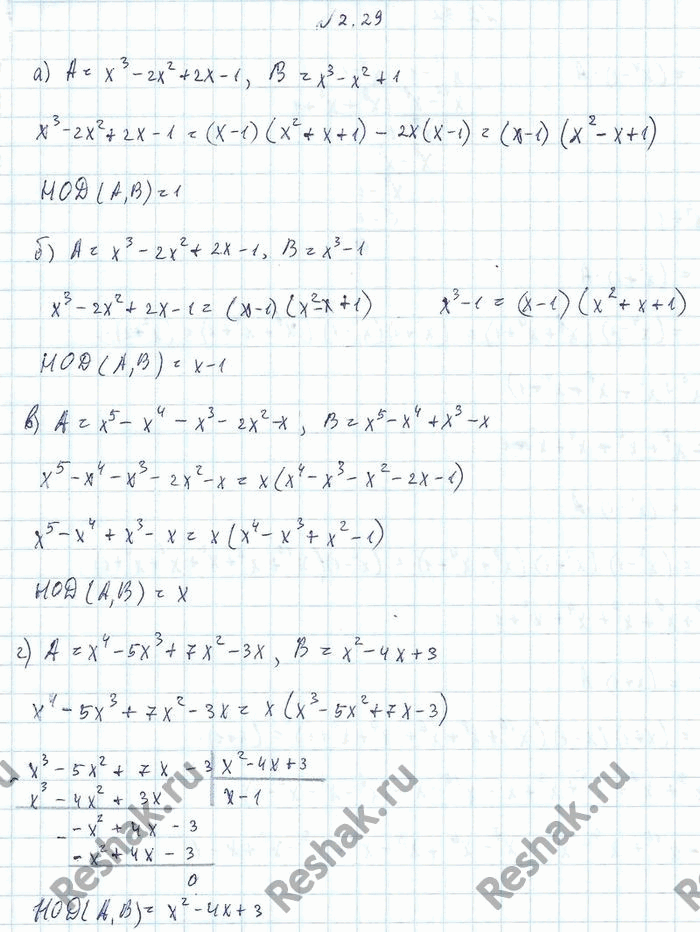 № 2.29
а) A = x³ - 2x² + 2x - 1, B = x³ - x² + 1
x³ - 2x² + 2x - 1 = (x-1)(x² + x + 1) - 2x(x-1) = (x-1)(x² - x + 1)
НОД(A,B) = 1
б) A = x³ - 2x² + 2x - 1, B = x³ - 1
x³ - 2x² + 2x - 1 = (x-1)(x² - x + 1) x³ - 1 = (x-1)(x² + x + 1)
НОД(A,B) = x-1
в) A = x⁵ - x⁴ - x³ - 2x² - x, B = x⁵ - x⁴ + x³ - x
x⁵ - x⁴ - x³ - 2x² - x = x(x⁴ - x³ - x² - 2x - 1)
x⁵ - x⁴ + x³ - x = x(x⁴ - x³ + x² - 1)
НОД(A,B) = x
г) A = x⁴ - 5x³ + 7x² - 3x, B = x² - 4x + 3
x⁴ - 5x³ + 7x² - 3x = x(x³ - 5x² + 7x - 3)
- x³ - 5x² + 7x - 3 | x² - 4x + 3
x³ - 4x² + 3x | x - 1
- -x² + 4x - 3
-x² + 4x - 3
0
НОД(A,B) = x² - 4x + 3
Reshak.ru
Reshak.ru
Reshak.ru